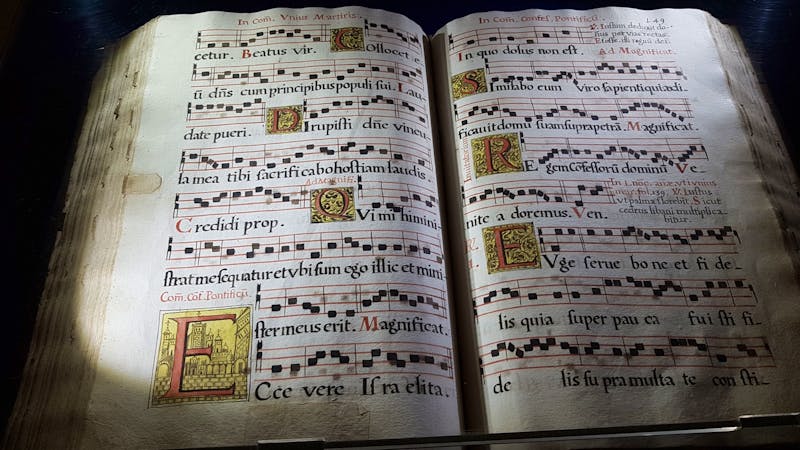 In Com̃. Vnius Martiris.
cetur. Beatus vir. COllocet e
ũ dñs cum principibus populi sui. Lau-
date pueri. DIrupisti dñe vincu
la mea tibi sacrificabo hostiam laudis.
Ad Magnif.
Credidi prop. QVi mi hi mini-
strat me sequatur et vbi sum ego illic et mini
Com̃. Cof. Pontificũ.
ster meus erit. Magnificat.
ECce vere Isra elita.
In Com̃. Confes. Pontificũ. 149
In quo dolus non est.
Ad Magnificat.
SImilabo eum viro sapienti qui ædi-
ficauit domũ suam supra petrã. Magnificat.
REgem Cõfessorũ dominũ Ve
nite a doremus. Ven.
lut palma florebit. Sicut
cedrus libani multiplica
bitur.
EVge serue bo ne et fi de-
lis quia super pau ca fu i sti fi-
de lis su pra multa te con sti-